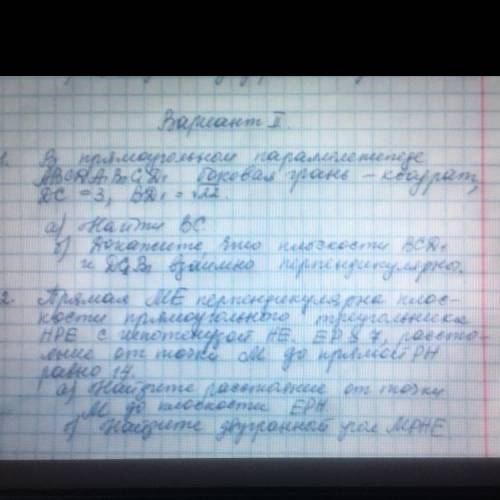 Вариант II.
1. В прямоугольном параллелепипеде
ABCDA₁B₁C₁D₁ боковая грань – квадрат,
DC = 3, BD₁ = √22.
а) Найти BC.
б) Докажите что плоскости BCD₁
и DC₁B₁ взаимно перпендикулярно.
2. Прямая ME перпендикулярна плос-
кости прямоугольного треугольника
HPE с гипотенузой HE, EP = 7, расстоя-
ление от точки M до прямой PH
равно 14.
а) Найдите расстояние от точки
M до плоскости EPH
б) Найдите двугранный угол MPHE